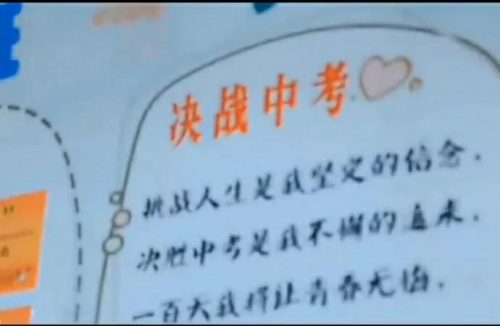 决战中考
挑战人生是我坚定的信念，
决胜中考是我不懈的追求，
一百天我将让青春无悔，